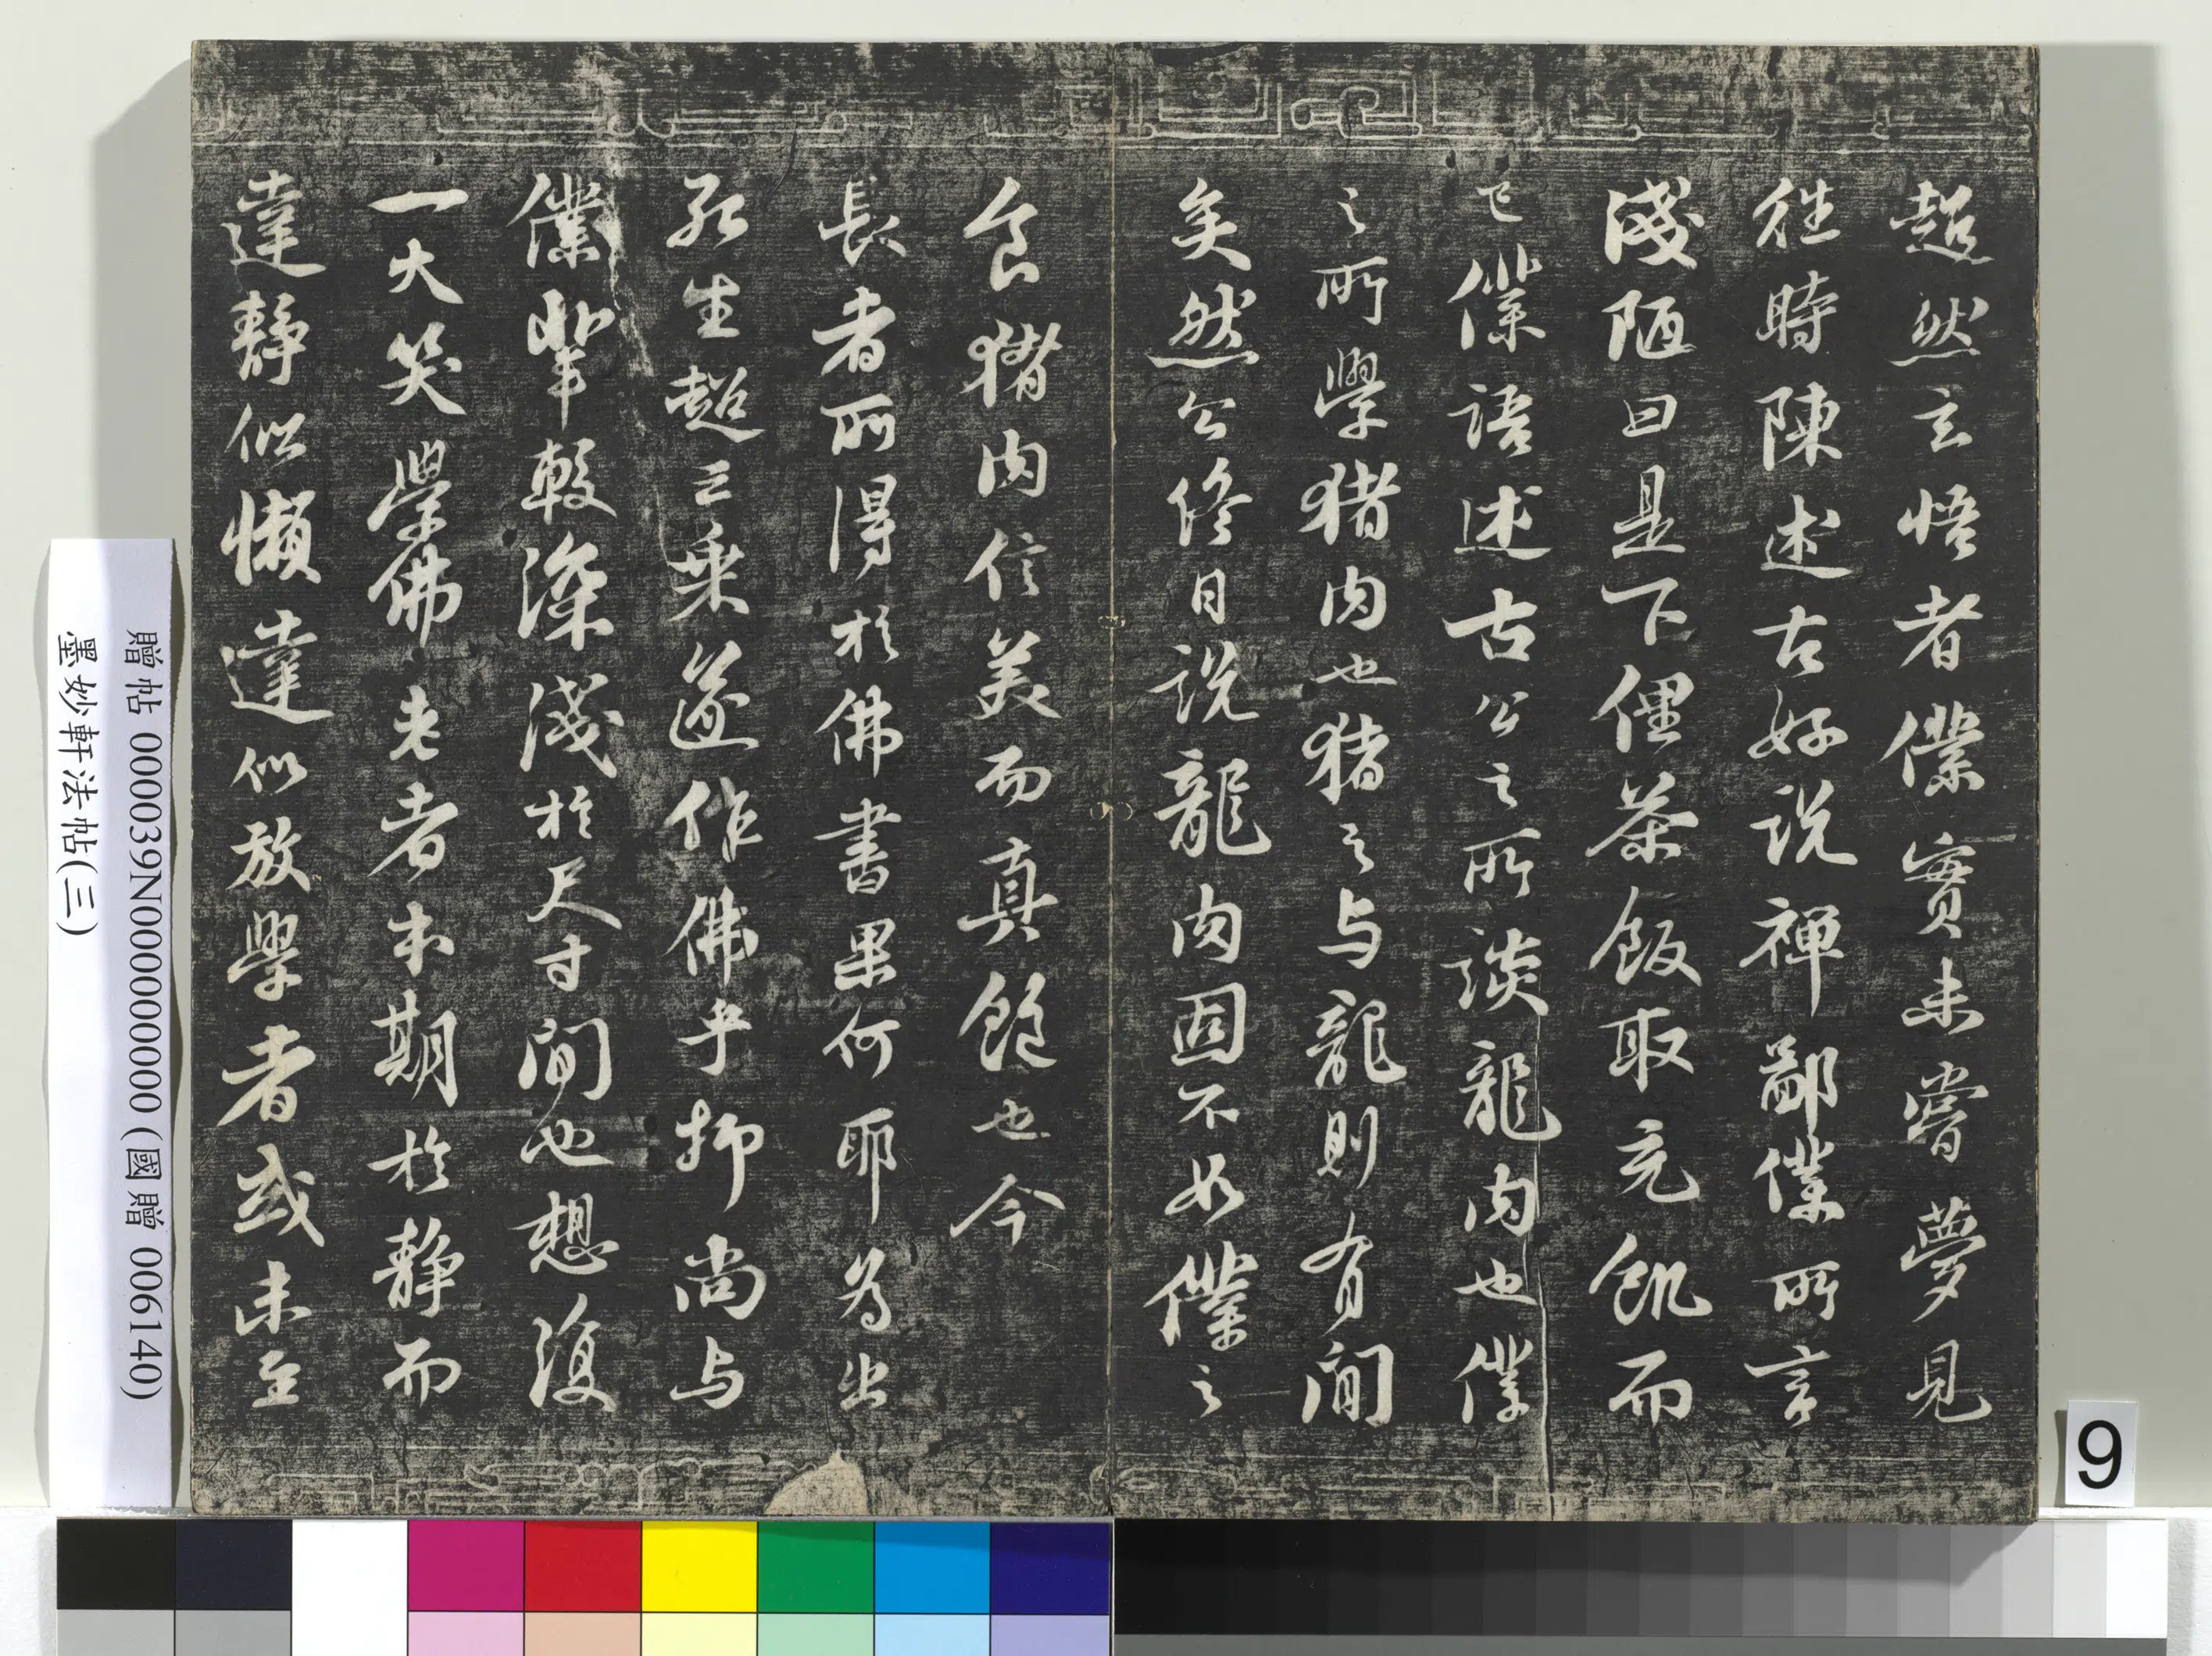 超然玄悟者僕實未嘗夢見
往時陳述古好説禪鄙僕所言
淺陋曰是下俚茶飯取充飢而
已僕語述古公之所談龍肉也僕
之所學猪肉也猪之与龍則有間
矣然公終日説龍肉固不如僕之
食猪肉信美而真飽也今
長者所得於佛書果何耶為出
死生超三乘遂作佛乎抑尚与
僕輩較深淺於尺寸間也想復
一大笑學佛老者本期於静而
達静似懶達似放學者或未至
贈帖 000039N000000000 (國贈 006140)
墨妙軒法帖(三)
9